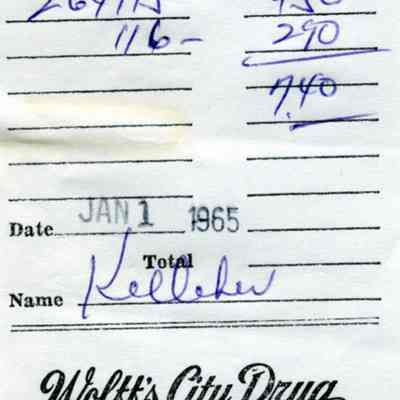 264115 450
116- 290
7.40
Date JAN 1 1965
Total
Name Kelleher
Wolff's City Drug